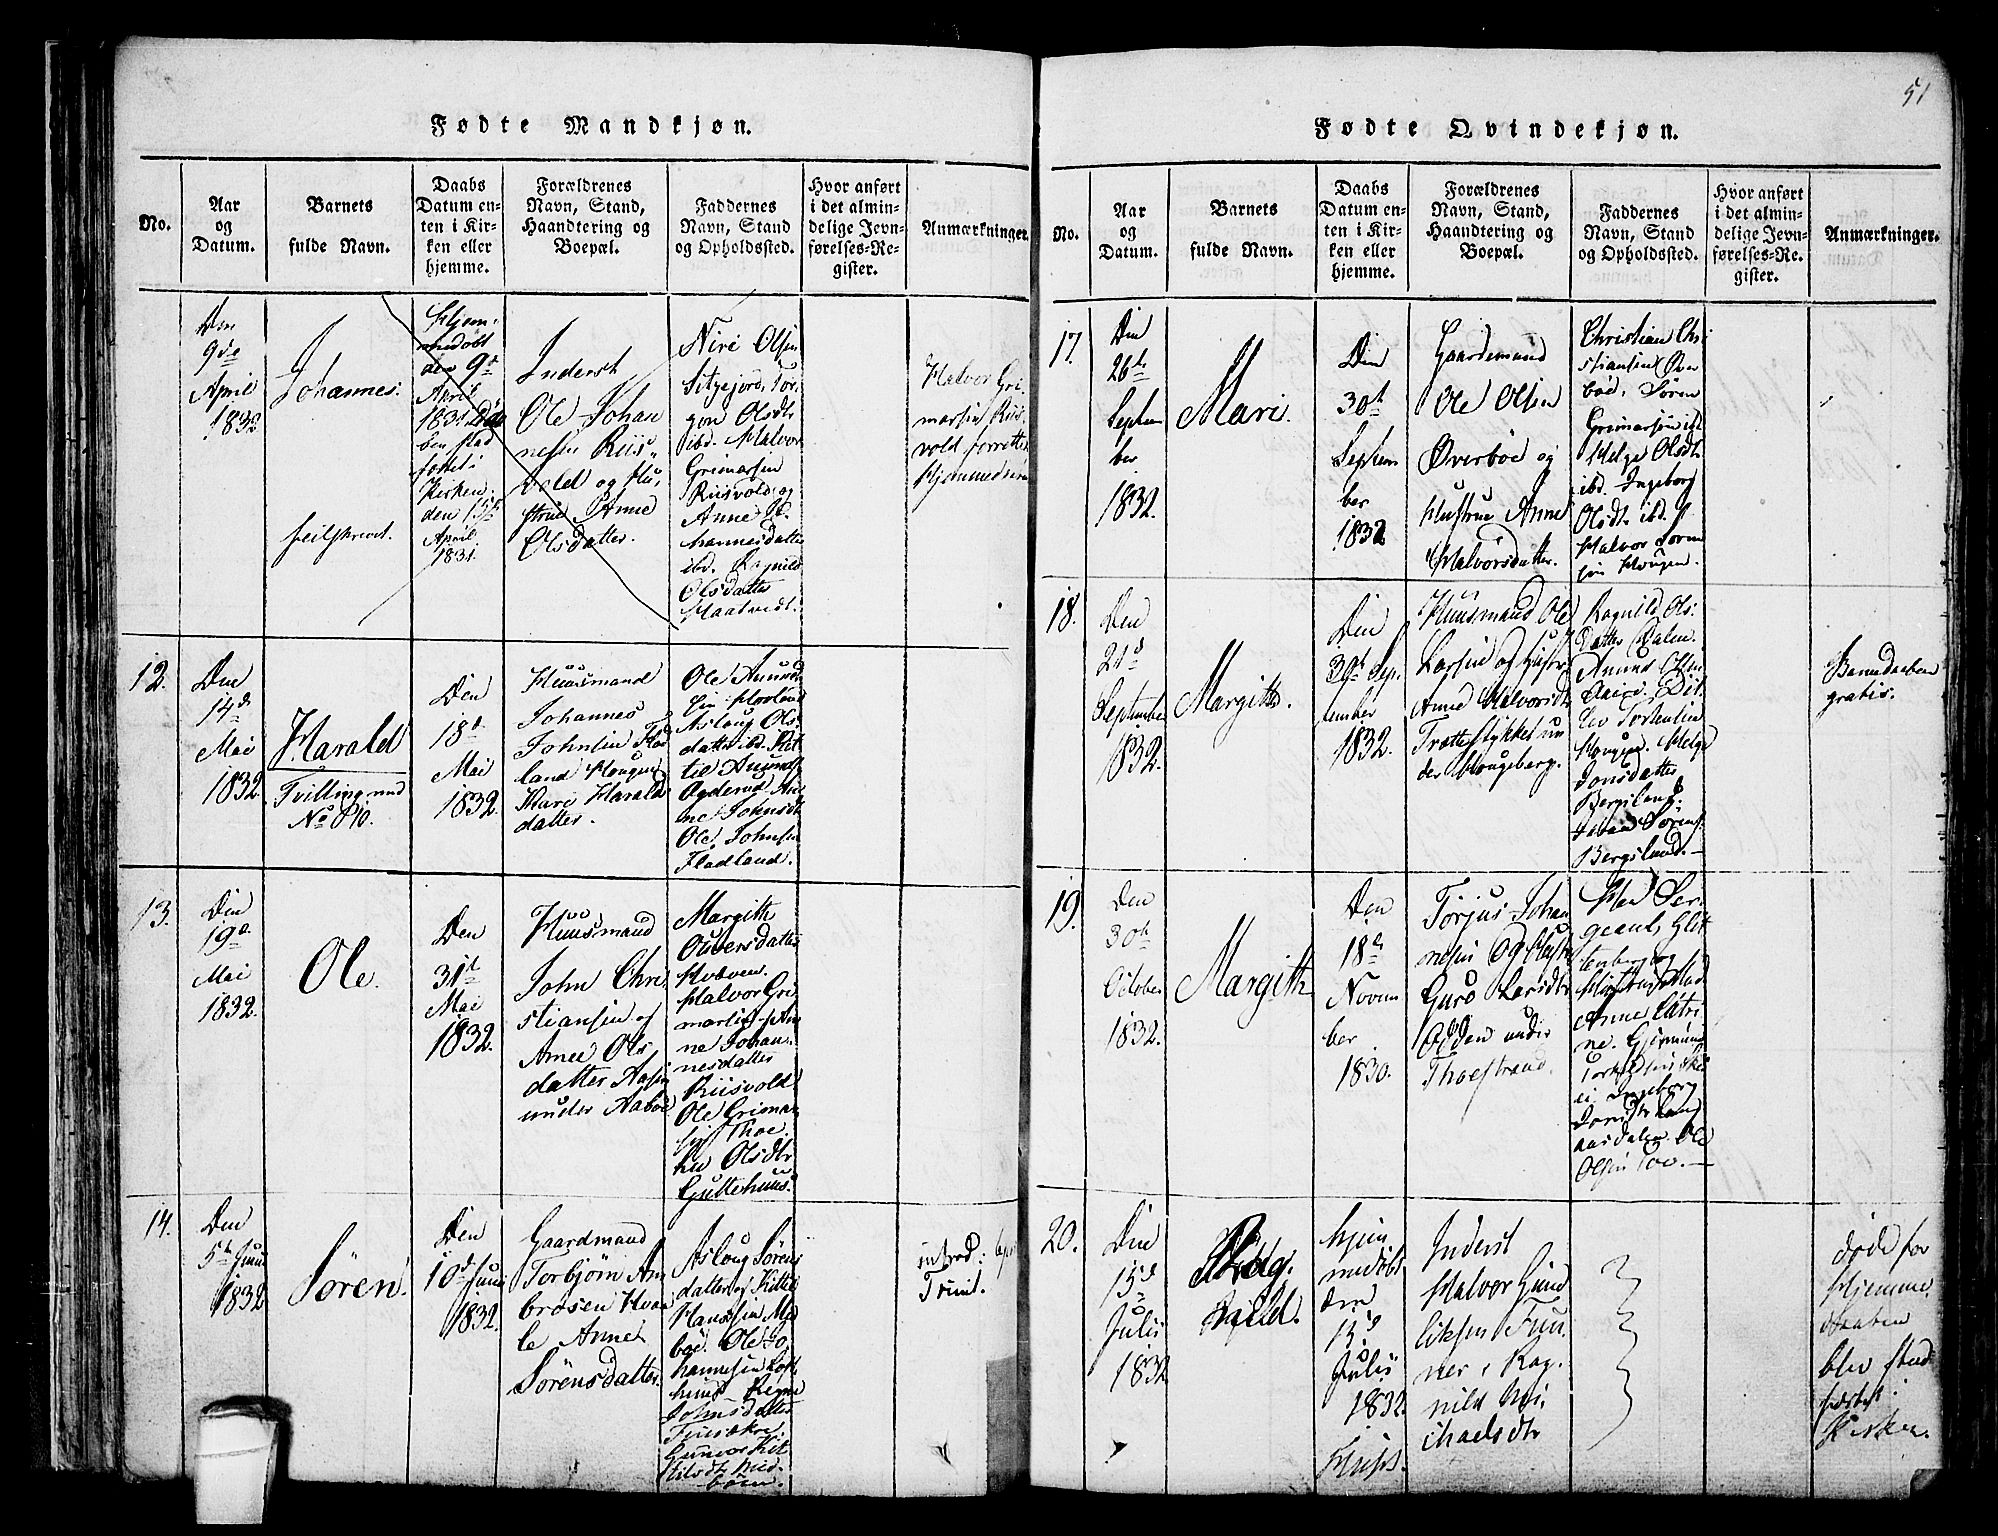 51
Fødte Mandkjøn.
No.
Aar
og
Datum.
Barnets
fulde Navn.
Daabs
Datum en-
ten i Kir-
ken eller
hjemme.
Forældrenes
Navn, Stand,
Haandtering og
Boepæl.
Faddernes
Navn, Stand
og Opholdssted.
Hvor anført
i det almin-
delige Jevn-
førelses-Re-
gister.
Anmærkninger.
Den
9de
April
1832
Johannes.
feilskrevet.
Hjem-
medøbt
den 9d
April
1831
ben stad
fæstet i
Kirken
den 15t
April
1831.
Inderst
Ole Johan
nesen Riis
vold og Hu,
strue Anne
Olsdatter.
Niri Olsen
Olsdtr
ibd. Halvor
Grimarsen
Riisvold, og
Anne Jo
hannesdatter
ibd. Ragnild
Olsdatter
Maatvedt.
Halvor Gri
marsen Riis
vold forrettede
Hjemmedaaben
12.
Den
14d
Mai
1832
Harald
Tvilling med
No 10.
Den
18d
Mai
1832.
Huusmand
Johannes
Johnsen Flad
land Hougen
Kari Harald
datter.
Ole Amund
sen Hovland
Aslaug Ols
datter ibd. Kit
til Amunds
Ogderud An
ne Johnsdt
Ole Johnsen
Fladland.
13.
Den
19de
Mai
1832.
Ole.
Den
31t
Mai
1832.
Huusmand
John Chri
stiansen og
Anne Ols
datter Aasen
under Aaboe
Margith
Oluversdatter
Hvæven.
Halvor Gri
marsen An
ne Johan
nesdatter
Riisvold
Ole Grimar
sen Thoe.
Olsdtr
Guttehuus.
14.
Den
5t Juni
1832
Sören.
Den
10d Juni
1832.
Gaardmand
Torbjörn Am
brosen Hvaa
le Anne
Sörensdatter.
Aslaug Sörens
datter og Kittel
Hansen Mæ
boe. Ole Jo
hannesen Loft
huus Signe
Johnsdatter
Gunvor Kit
tilsdtr
introd:
Trinit.
Fødte Qvindekjøn.
No.
Aar
og
Datum.
Barnets
fulde Navn.
Daabs
Datum en-
ten i Kir-
ken eller
hjemme.
Forældrenes
Navn, Stand,
Haandtering og
Boepæl.
Faddernes
Navn, Stand
og Opholdssted.
Hvor anført
i det almin-
delige Jevn-
førelses-Re-
gister.
Anmærkninger.
17.
Den
26de
Septem
ber
1832.
Mari.
Den
30t
Septem
ber
1832
Gaardemand
Ole Olsen
Øverböe og
Hustrue Anne
Halvorsdatter.
Christian Chri
stiansen Øver
boe, Sören
Grimarsen ibd
Helge Olsdt
ibd. Ingeborg
Olsdt. ibd.
Halvor Sören
sen Hougen.
18.
Den
21d
September
1832.
Margith.
Den
30t Sep
tember
1832.
Huusmand Ole
Larsen og Hustr
Anne Halvorsdt
Trættestykket un
der Hougeberg.
Ragnild Ols
datter Dalen.
Amund Olsen
Hougen. Helge
Jonsdatter
Bergsland
Johan Sörens
Bergsland.
Barnedaaben
gratis.
19.
Den
30te
October
1832.
Margith
Den
18de
Novem
ber
1830.
Torjus Johan
nesen og Hustr
Guro Larsdtr
Odden under
Thoestrand.
Her Ser
geant Glit
tenberg og
Hustrue Mad
Anne Catri
ne. Gjermund
Ingeborg
aasdalen Ole
Olsen Toe.
20.
Den
15d
Julii
1832
Rag
nild.
hjem
medöbt
den
15d
Julii
1832.
Inderst
Halvor Gund
Ragnild Mi
chaelsdtr
døde før
Hjemme
daaben
blev stad
fæstet i
Kirken.